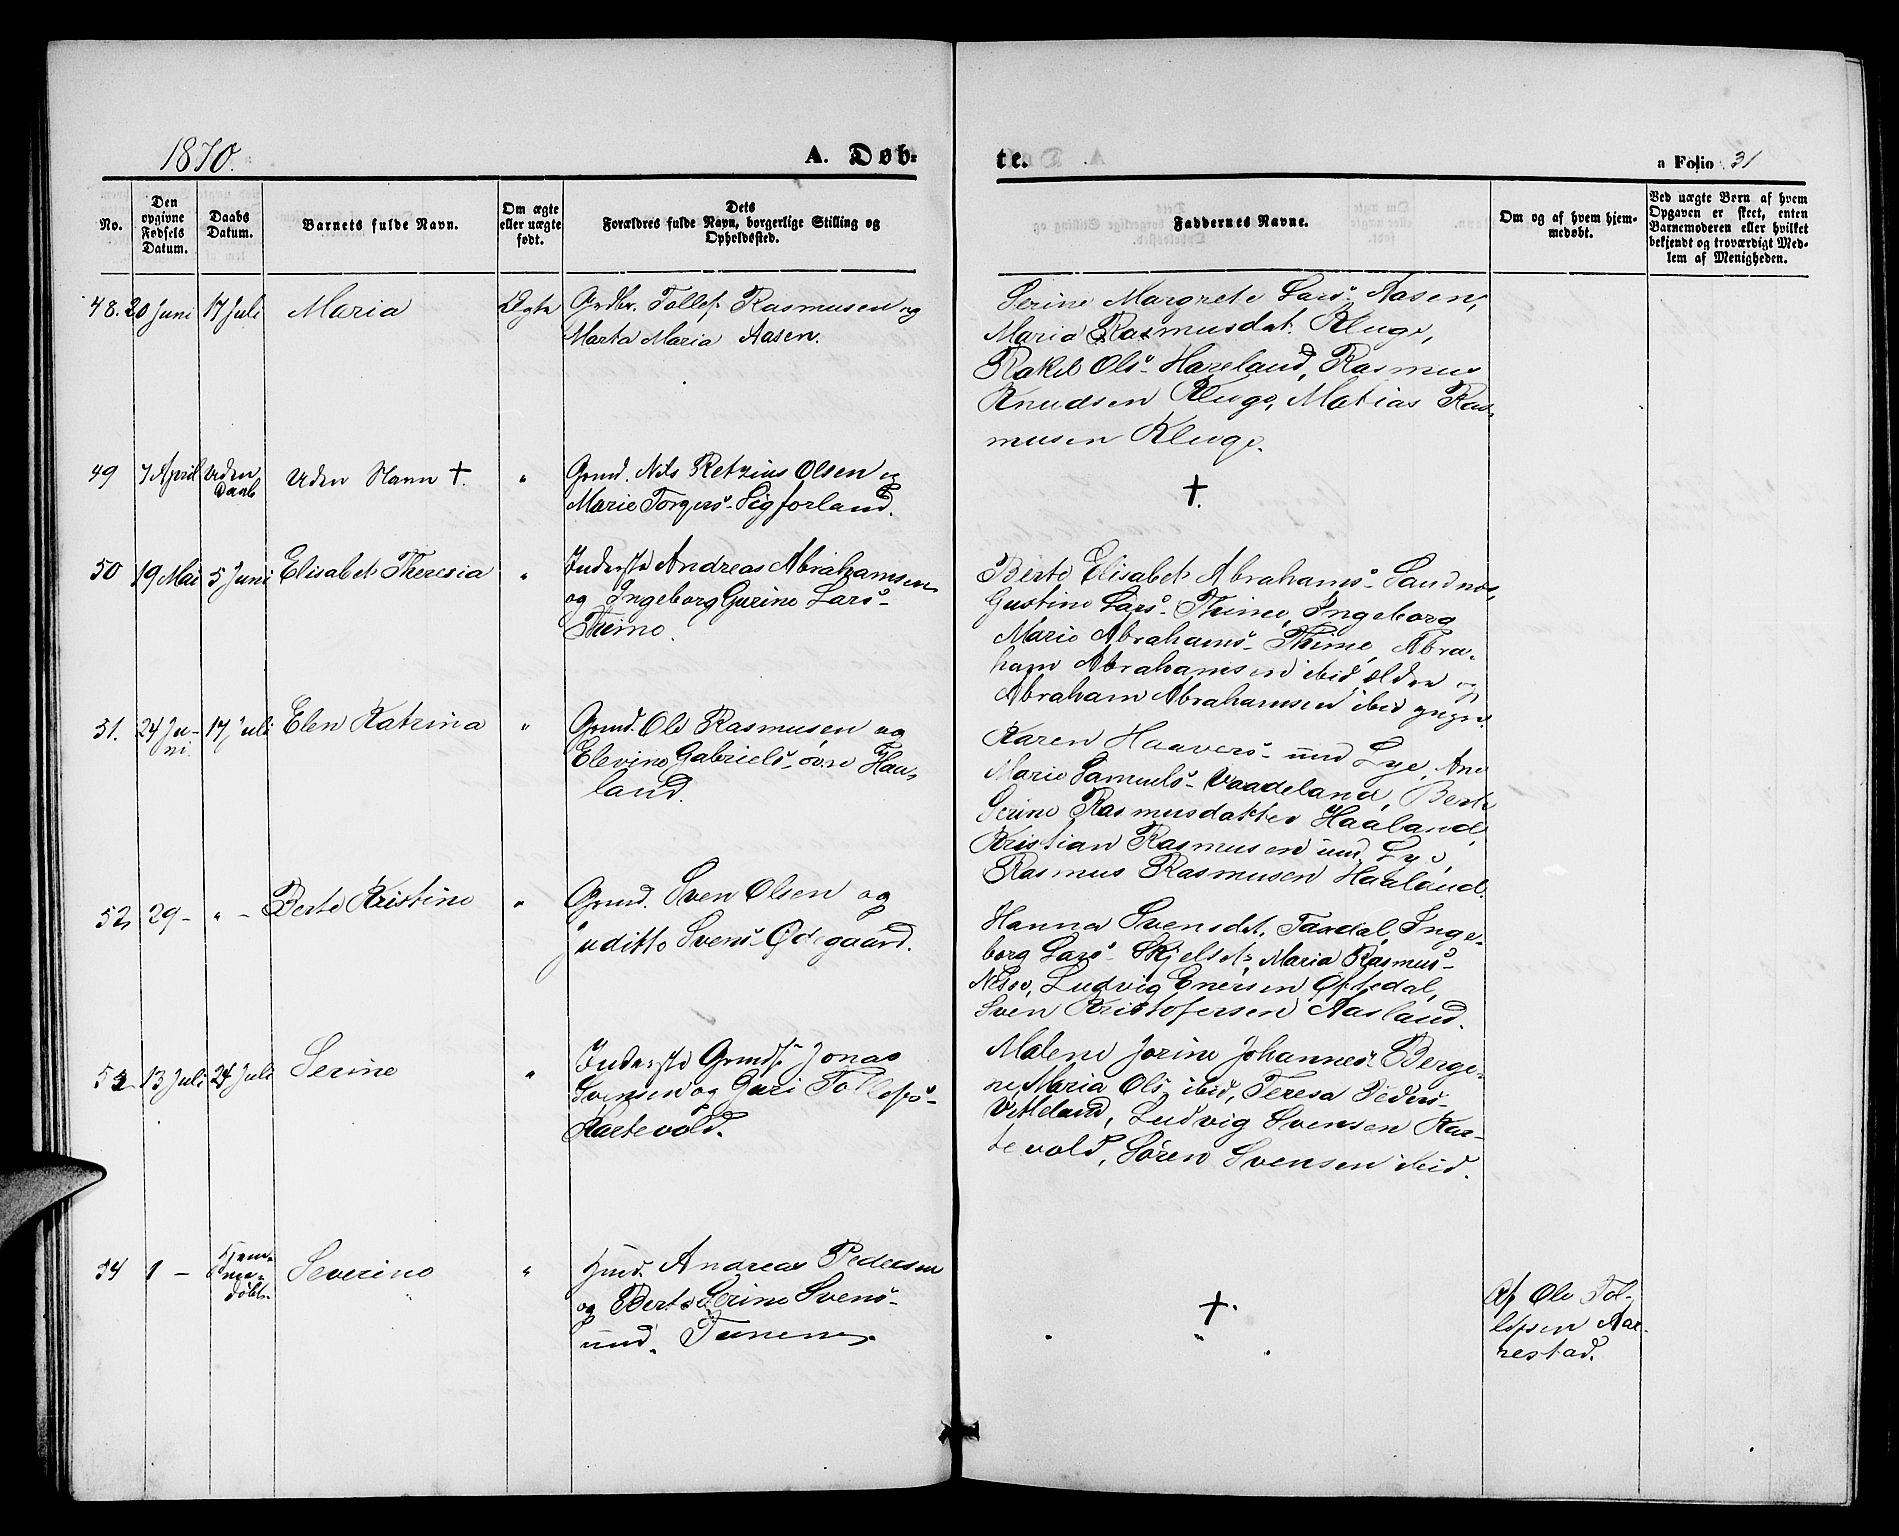 1870.
A. Døb-
te.
a Folio 31
No.
Den
opgivne
Fødsels
Datum.
Daabs
Datum.
Barnets fulde Navn.
Om ægte
eller uægte
født.
Dets
Forældres fulde Navn, borgerlige Stilling og
Opholdssted.
Faddernes Navne.
Om og af hvem hjem-
medøbt.
Ved uægte Børn af hvem
Opgaven er skeet, enten
Barnemoderen eller hvilket
bekjendt og troværdigt Med-
lem af Menigheden.
48. 20 Juni 17 Juli Maria Ægte
Tollef Rasmusen og
Marta Maria Aasen.
Serine Margrete Lars- Aasen,
Maria Rasmusdat. Kluge,
Rakel Ols- Hareland, Rasmus
Knudsen Kluge, Matias Ras-
musen Kluge.
49 7 April Uden
Daab
Uden Navn †. "
Grmd. Nils Retzius Olsen og
Marie Torgers- Sigforland.
†.
50 19 Mai 5 Juni Elisabet Theresia "
Inderste Andreas Abrahamsen
og Ingeborg Gurine Lars-
Thime.
Berte Elisabet Abrahams- Sandnes,
Gustine Lars- Thime, Ingeborg
Marie Abrahams- Thime, Abra-
ham Abrahamsen ibid ældre og
Abraham Abrahamsen ibid yngre.
51. 24 Ju-
ni
17 Juli Elen Katrina "
Grmd. Ole Rasmusen og
Elevine Gabriels- øvre Haa-
land.
Karen Haavers- und Lye, Ane
Marie Samuels- Vaadeland, Berte
Serine Rasmusdatter Haaland,
Kristian Rasmusen und. Lye,
Rasmus Rasmusen Haaland.
52, 29 - " - Berte Kristine "
Grmd. Sven Olsen og
Juditte Svens- Ødegaard.
Hanna Svensdt. Taxdal, Inge-
borg Lars- Maria Rasmus-
Næse, Ludvig Enersen Oftedal,
Sven Kristofersen Aasland.
53 13 Juli 24 Juli Serine "
Inderste Grmds. Jonas
Svensen og Guri Tollefs-
Kartevold.
Malene Jorine Johannes- Berge-
ne, Maria Ols- ibid, Teresa Peders-
Vetleland, Ludvig Svensen Kar-
tevold, Sören Svensen ibid.
54 1 - Hjem-
me-
døbt.
Severine "
Hmd. Andreas Pedersen
og Berte Serine Svens-
und. Tunem
†.
"
Af Ole Tol-
lefsen Aar-
restad.